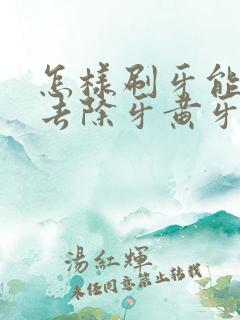 怎樣刷牙能
去除牙黃牙
湯紅輝
未經同意禁止轉載